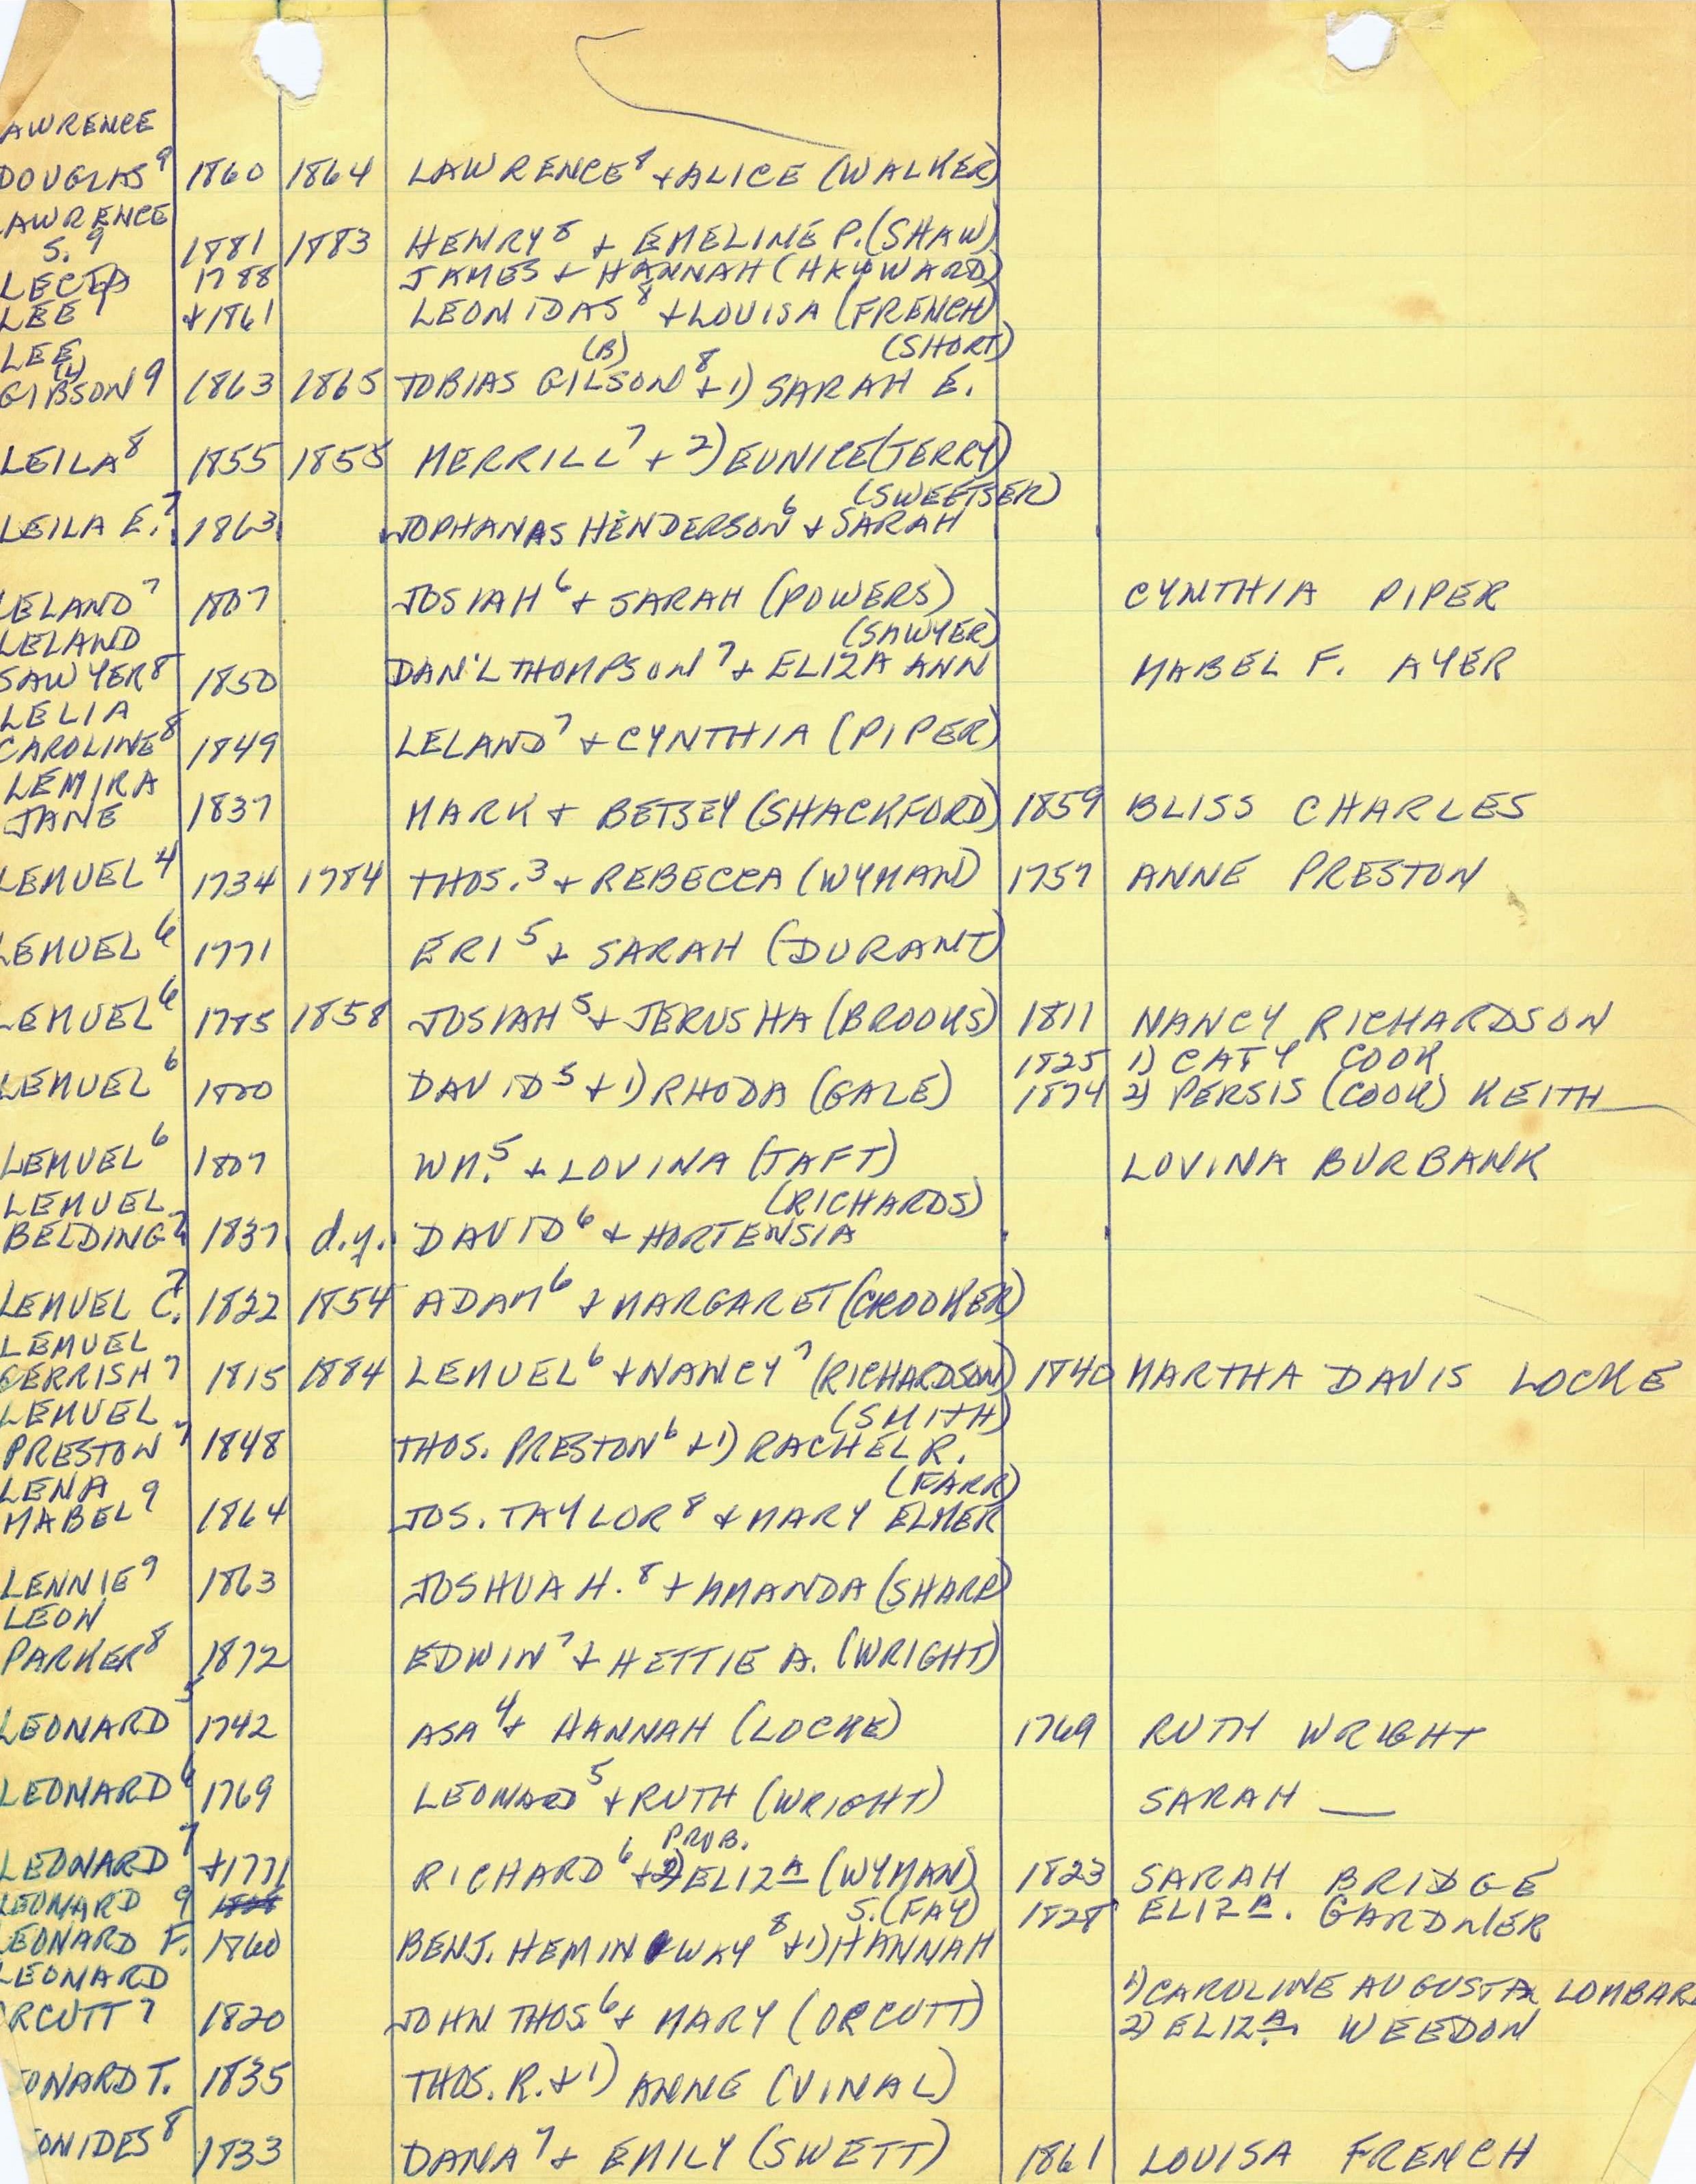 AWRENCE
DOUGLAS⁹ 1860 1864 LAWRENCE⁸ + ALICE (WALKER)
AWRENCE
S.⁹ 1881 1883 HENRY⁸ + EMELINE P. (SHAW)
LECTA 1788 JAMES + HANNAH (HAYWARD)
LEE⁹ +1861 LEONIDAS⁸ + LOUISA (FRENCH)
LEE (B) (SHORT)
(L)
GIBSON⁹ 1863 1865 TOBIAS GILSON⁸ + 1) SARAH E.
LEILA⁸ 1855 1855 MERRILL⁷ + 2) EUNICE (TERRY)
(SWEETSER)
LEILA E.⁷ 1863 JOPHANAS HENDERSON⁶ + SARAH
LELAND⁷ 1807 JOSIAH⁶ + SARAH (POWERS) CYNTHIA PIPER
LELAND (SAWYER)
SAWYER⁸ 1850 DAN'L THOMPSON⁷ + ELIZA ANN MABEL F. AYER
LELIA
CAROLINE⁸ 1849 LELAND⁷ + CYNTHIA (PIPER)
LEMIRA
JANE 1837 MARK + BETSEY (SHACKFORD) 1859 BLISS CHARLES
LEMUEL⁴ 1734 1784 THOS.³ + REBECCA (WYMAN) 1757 ANNE PRESTON
LEMUEL⁶ 1771 ERI⁵ + SARAH (DURANT)
LEMUEL⁶ 1785 1858 JOSIAH⁵ + JERUSHA (BROOKS) 1811 NANCY RICHARDSON
1825 1) CATY COOK
LEMUEL⁶ 1800 DAVID⁵ + 1) RHODA (GALE) 1874 2) PERSIS (COOK) KEITH
LEMUEL⁶ 1807 WM.⁵ + LOVINA (TAFT) LOVINA BURBANK
LEMUEL (RICHARDS)
BELDING⁷ 1837 d.y. DAVID⁶ + HORTENSIA
LEMUEL C.⁷ 1822 1854 ADAM⁶ + MARGARET (CROOKER)
LEMUEL
GERRISH⁷ 1815 1884 LEMUEL⁶ + NANCY⁷ (RICHARDSON) 1840 MARTHA DAVIS LOCKE
LEMUEL (SMITH)
PRESTON⁷ 1848 THOS. PRESTON⁶ + 1) RACHEL R.
LENA (FARR)
MABEL⁹ 1864 JOS. TAYLOR⁸ + MARY ELMER
LENNIE⁹ 1863 JOSHUA H.⁸ + AMANDA (SHARP)
LEON
PARKER⁸ 1872 EDWIN⁷ + HETTIE A. (WRIGHT)
LEONARD⁵ 1742 ASA⁴ + HANNAH (LOCKE) 1769 RUTH WRIGHT
LEONARD⁶ 1769 LEONARD⁵ + RUTH (WRIGHT) SARAH __
PROB.
LEONARD⁷ +1771 RICHARD⁶ + 2) ELIZᴬ (WYMAN) 1823 SARAH BRIDGE
LEONARD⁹ S. (FAY) 1828 ELIZᴬ. GARDNER
LEONARD F. 1860 BENJ. HEMINWAY⁸ + 1) HANNAH
LEONARD 1) CAROLINE AUGUSTA LOMBAR
RCUTT⁷ 1820 JOHN THOS⁶ + MARY (ORCUTT) 2) ELIZᴬ. WEEDON
ONARD T. 1835 THOS. R. + 1) ANNE (VINAL)
ONIDES⁸ 1833 DANA⁷ + EMILY (SWETT) 1861 LOUISA FRENCH